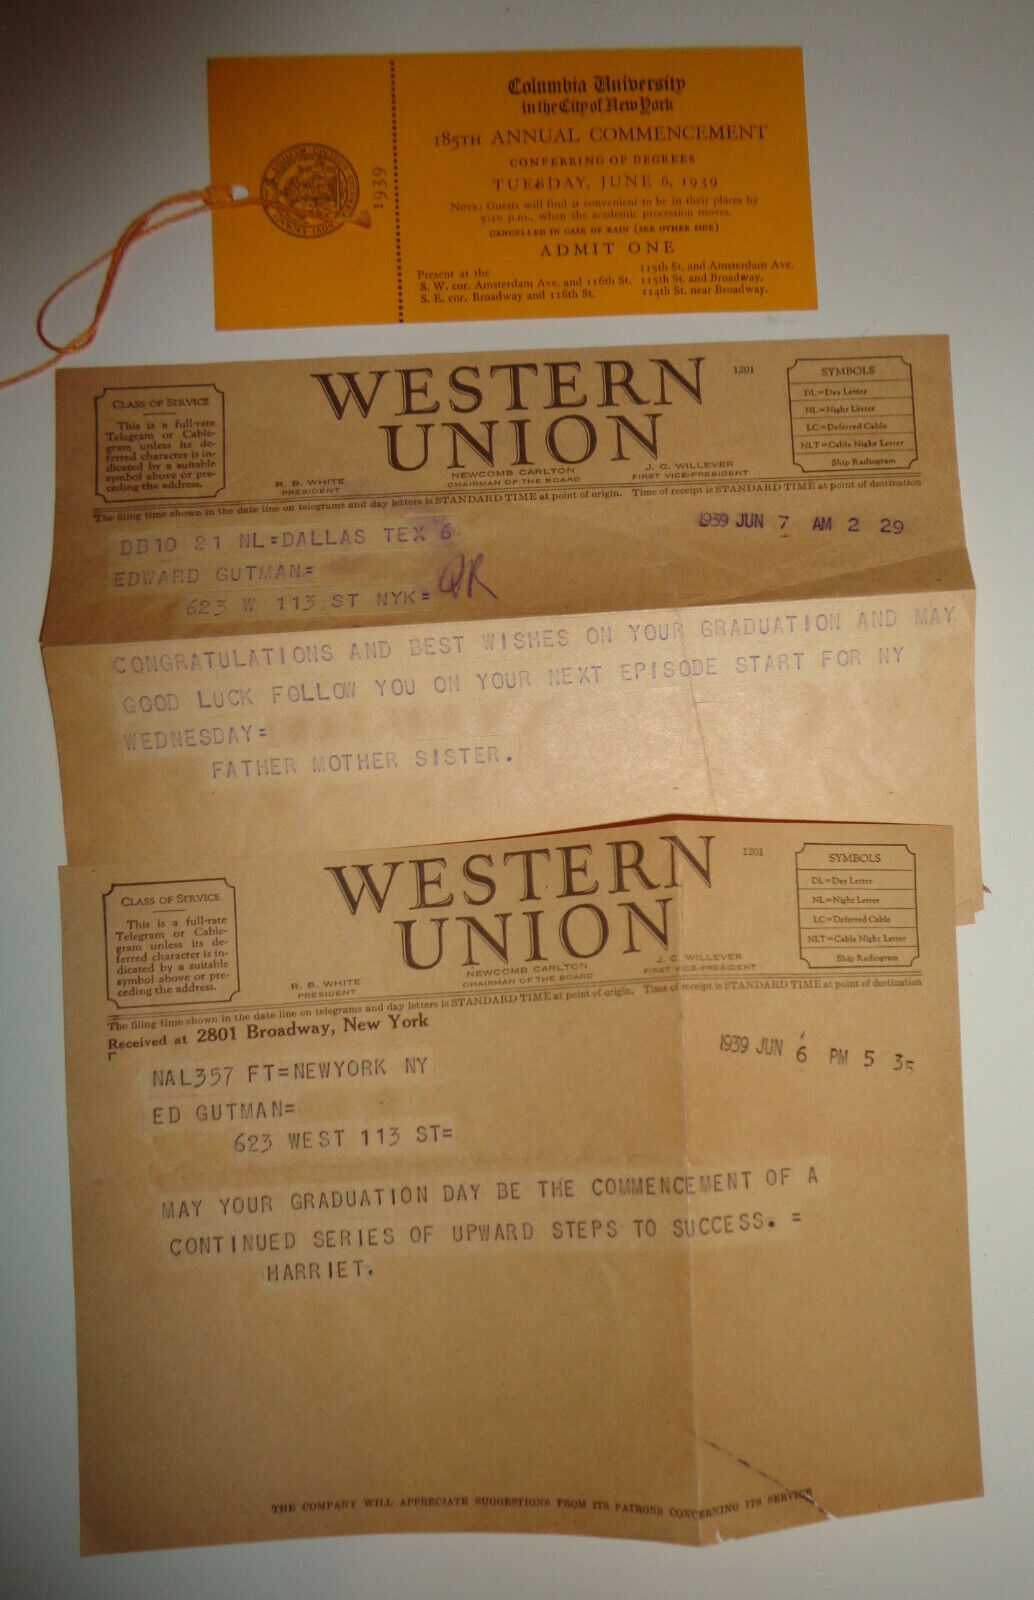 Columbia University
in the City of New York
185TH ANNUAL COMMENCEMENT
CONFERRING OF DEGREES
TUESDAY, JUNE 6, 1939
NOTE: Guests will find it convenient to be in their places by
5:10 p.m., when the academic procession moves.
CANCELLED IN CASE OF RAIN (SEE OTHER SIDE)
ADMIT ONE
Present at the
S. W. cor. Amsterdam Ave. and 116th St.
S. E. cor. Broadway and 116th St.
115th St. and Amsterdam Ave.
115th St. and Broadway.
114th St. near Broadway.
1939
CLASS OF SERVICE
This is a full-rate
Telegram or Cable-
gram unless its de-
ferred character is in-
dicated by a suitable
symbol above or pre-
ceding the address.
WESTERN
UNION
1201
SYMBOLS
DL=Day Letter
NL=Night Letter
LC=Deferred Cable
NLT=Cable Night Letter
Ship Radiogram
R. B. WHITE
PRESIDENT
NEWCOMB CARLTON
CHAIRMAN OF THE BOARD
J. C. WILLEVER
FIRST VICE-PRESIDENT
The filing time shown in the date line on telegrams and day letters is STANDARD TIME at point of origin. Time of receipt is STANDARD TIME at point of destination
1939 JUN 7 AM 2 29
DB10 21 NL=DALLAS TEX 6
EDWARD GUTMAN=
623 W 113 ST NYK=
QR
CONGRATULATIONS AND BEST WISHES ON YOUR GRADUATION AND MAY
GOOD LUCK FOLLOW YOU ON YOUR NEXT EPISODE START FOR NY
WEDNESDAY=
FATHER MOTHER SISTER.
CLASS OF SERVICE
This is a full-rate
Telegram or Cable-
gram unless its de-
ferred character is in-
dicated by a suitable
symbol above or pre-
ceding the address.
WESTERN
UNION
1201
SYMBOLS
DL=Day Letter
NL=Night Letter
LC=Deferred Cable
NLT=Cable Night Letter
Ship Radiogram
R. B. WHITE
PRESIDENT
NEWCOMB CARLTON
CHAIRMAN OF THE BOARD
J. C. WILLEVER
FIRST VICE-PRESIDENT
The filing time shown in the date line on telegrams and day letters is STANDARD TIME at point of origin. Time of receipt is STANDARD TIME at point of destination
Received at 2801 Broadway, New York
1939 JUN 6 PM 5 35
NAL357 FT=NEWYORK NY
ED GUTMAN=
623 WEST 113 ST=
MAY YOUR GRADUATION DAY BE THE COMMENCEMENT OF A
CONTINUED SERIES OF UPWARD STEPS TO SUCCESS. =
HARRIET.
THE COMPANY WILL APPRECIATE SUGGESTIONS FROM ITS PATRONS CONCERNING ITS SERVICE